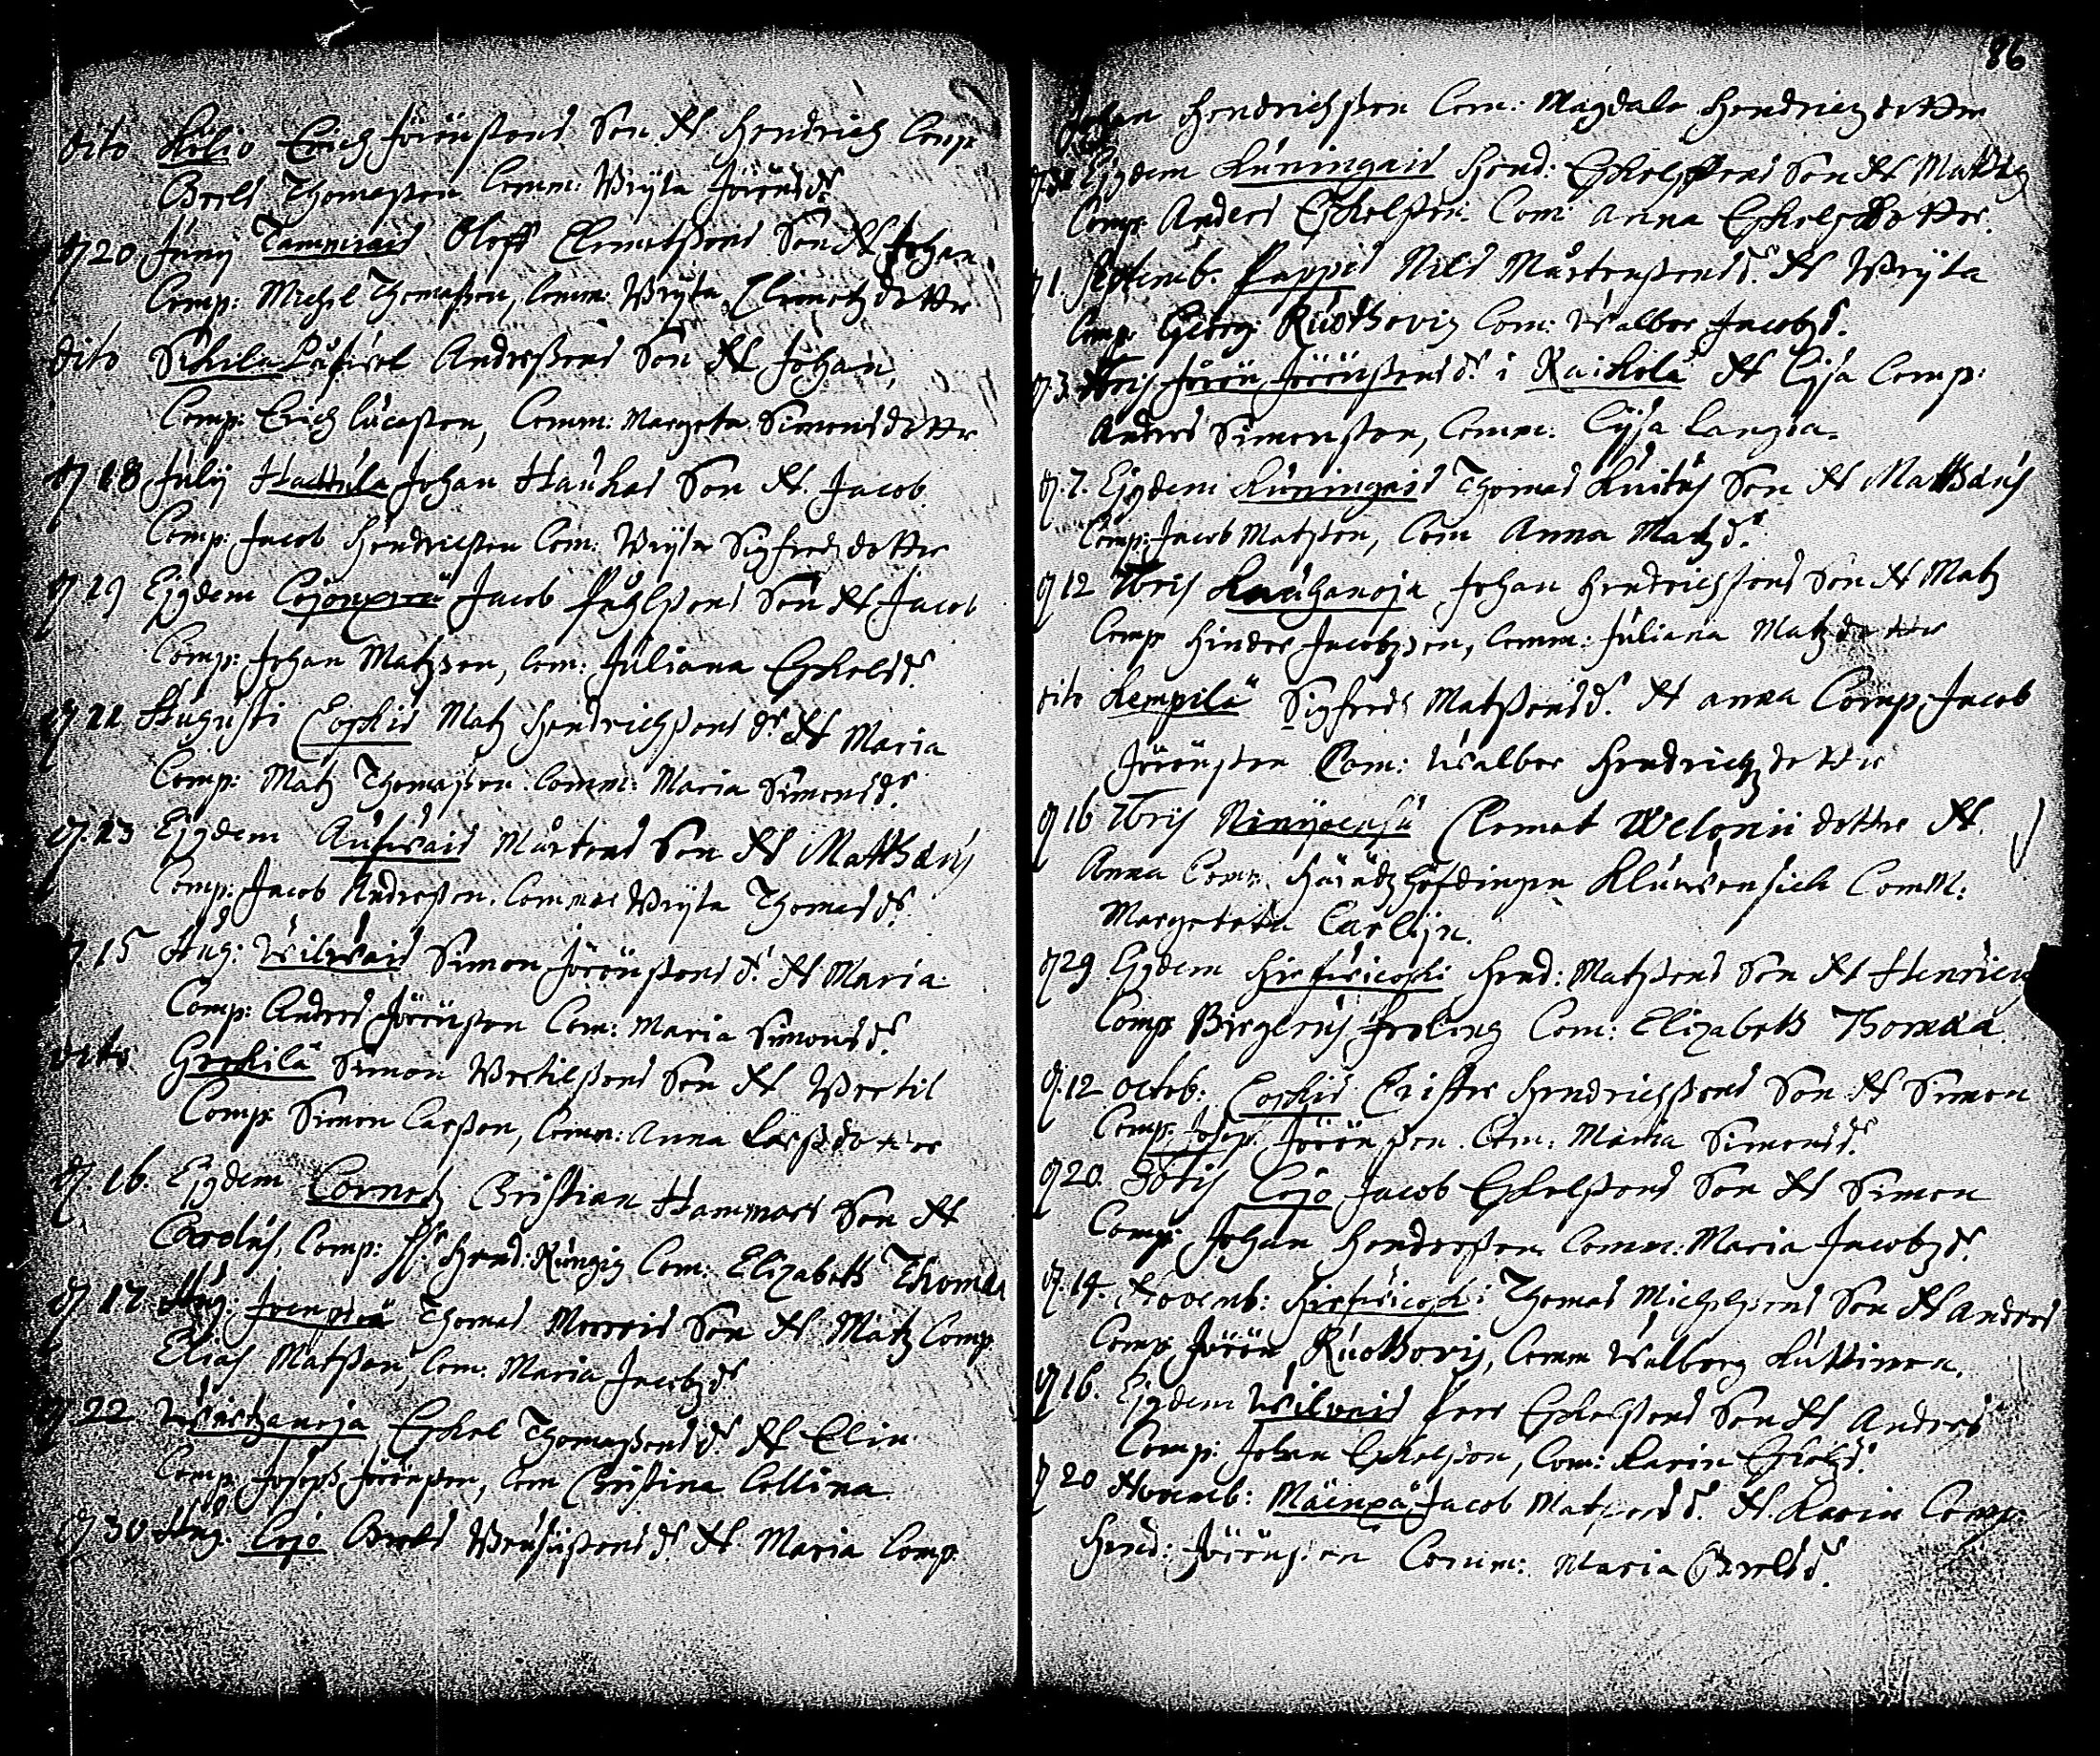 dito Kölio Erich Jörensons Son N. Hendrich Comp
Bertil Thomasson Comm: Brijta Jörensdr
d 20 Junij Tammirais Oloff Clemetsons Son N Johan
Comp: Michel Thomasson, Comm: Brijta Clemetzdotter
dito Sikila Påhwel Andersons Son N Johan,
Comp: Erich Lucasson, Comm: Margeta Simonsdotter
d 18 Julij Hattula Johan Haukas Son N. Jacob
Comp: Jacob Hendricson Com: Brijta Sigfredzdotter
d 19 Ejusdem Jacob Påhlsons Son N Jacob
Comp: Johan Matzson, Com: Juliana Eskelsdr
d 22 Augusti Coskis Matz Hendrichsons dr N Maria
Comp: Matz Thomasson Comm: Maria Simonsdr
d. 23 Ejusdem Auhwais Mårtens Son N Matthæus
Comp: Jacob Andersson. Commat Brijta Thomasdr
d. 15 Aug: Wilwais Simon Jörensons dr N Maria
Comp: Anders Jörenson Com: Maria Simonsdr
dito Gerkilä Simon Bertilsons Son N Bertil
Comp: Simon Larsson, Comm: Anna Larsdotter
d. 16. Ejusdem Cornet Christian Hammars Son N
Carolus, Comp: Hr Hend: Rungig Com: Elizabeth Thomæ
d 17 Aug: Thomas Son N Matz Comp
Elias Matsson, Com: Maria Jacobzdr
d 22 Wirtzanoja Eskel Thomassons dr N Elin
Comp: Joseph Jörenson, Com Christina Collina.
d 30 Aug. Cojo Bertils dr N Maria Comp.
86
Johan Hendrichson Com: Magdale Hendrichzdotter
Ejusdem Kuningais Hend: Eskelsons Son N Mathig
Comp Anders Eskelson Com: Anna Eskelsdotter.
d 1. Septemb. Pappis Nils Mårtensons dr N Brijta
Comp Georg: Ruuthovig Com: Walbor Jacobzd.
d 3. 7bris Jören Jörensons dr i Raikola N Lijsa Comp:
Anders Simonson, Comm: Lijsa Langia.
d. 7. Ejusdem Kuningais Thomas Knuths Son N Matthæus
Comp: Jacob Matzson, Com Anna Matzdr
d 12 7bris Kauhanoja Johan Hendrichsons Son N Matz
Comp Hinder Jacobzson, Comm: Juliana Matzdotter
dito Kempilä Sigfreds Matssons dr N Anna Comp: Jacob
Jörenson Com: Walbor Hendrichzdotter
d 16 7bris Clemet Welonii dotter N.
Anna Comp Häradzhöfdingen Kluwensich Comm:
Margareta Carlijn.
d 29 Ejusdem Hirfwicoski Hend: Matssons Son N Henricus
Comp Birgerus Froling Com: Elizabeth Thomæa
d. 12 octob: Coskis Crister Hendrichsons Son N Simon
Comp: Josep: Jörenson. Com: Maria Simonsdr
d 20. 8bris Cojo Jacob Eskelsons Son N Simon
Comp: Johan Henderson Comm: Maria Jacobzdr
d. 14. Novemb: Hirfwicoski Thomas Michelsons Son N Anders
Comp Jören Ruothovij, Comm Walborg Kuttinen.
d 16. Ejusdem Wilwais Pers Eskelsons Son N Anders
Comp: Johan Eskelson, Com: Karin Eskelsdr
d 20 Novemb: Mäenpä Jacob Matzsons dr N. Karin Comp:
Hend: Jörenson Comm: Maria Bertilsdr